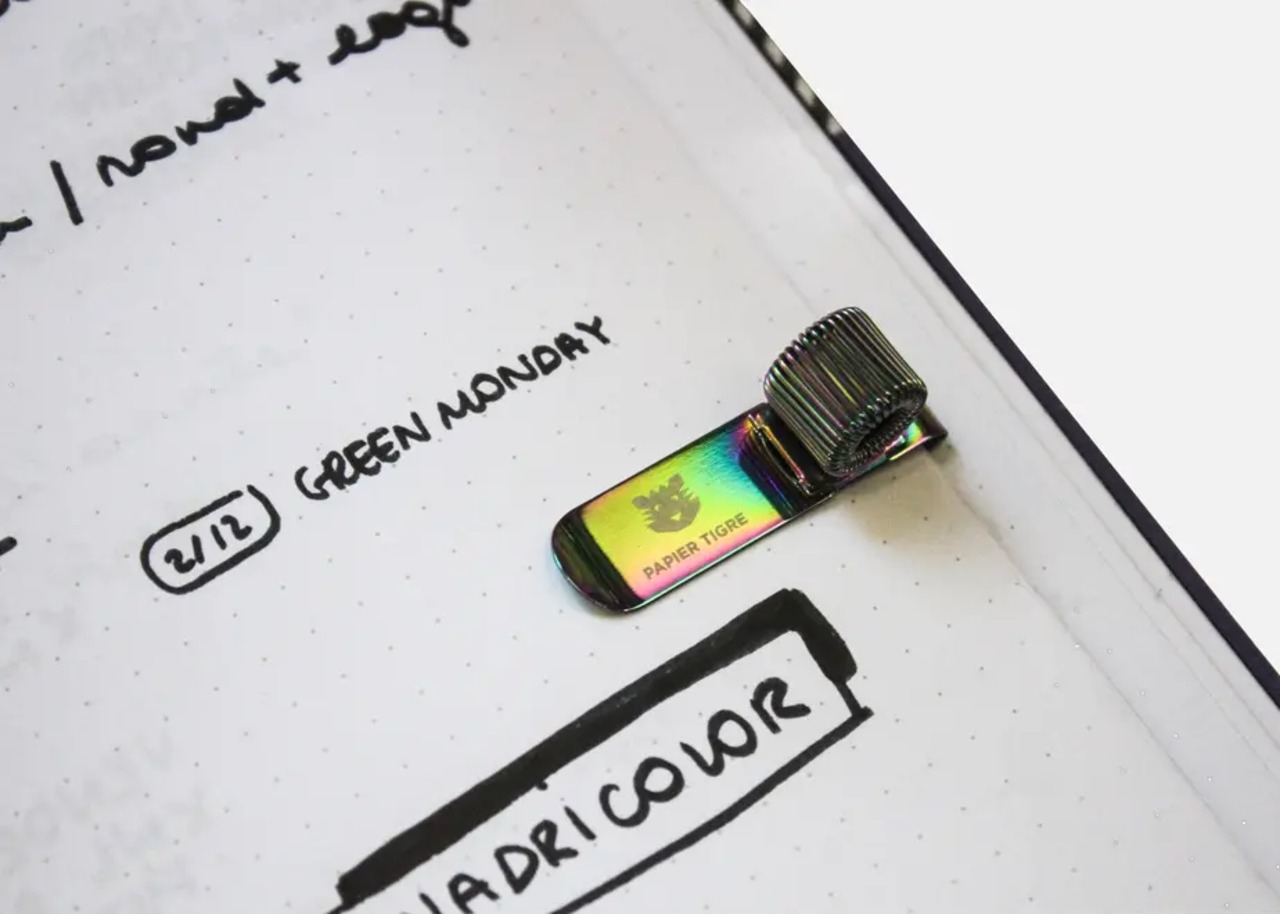 | rond + logo
2/12 GREEN MONDAY
PAPIER TIGRE
UADRICOLOR